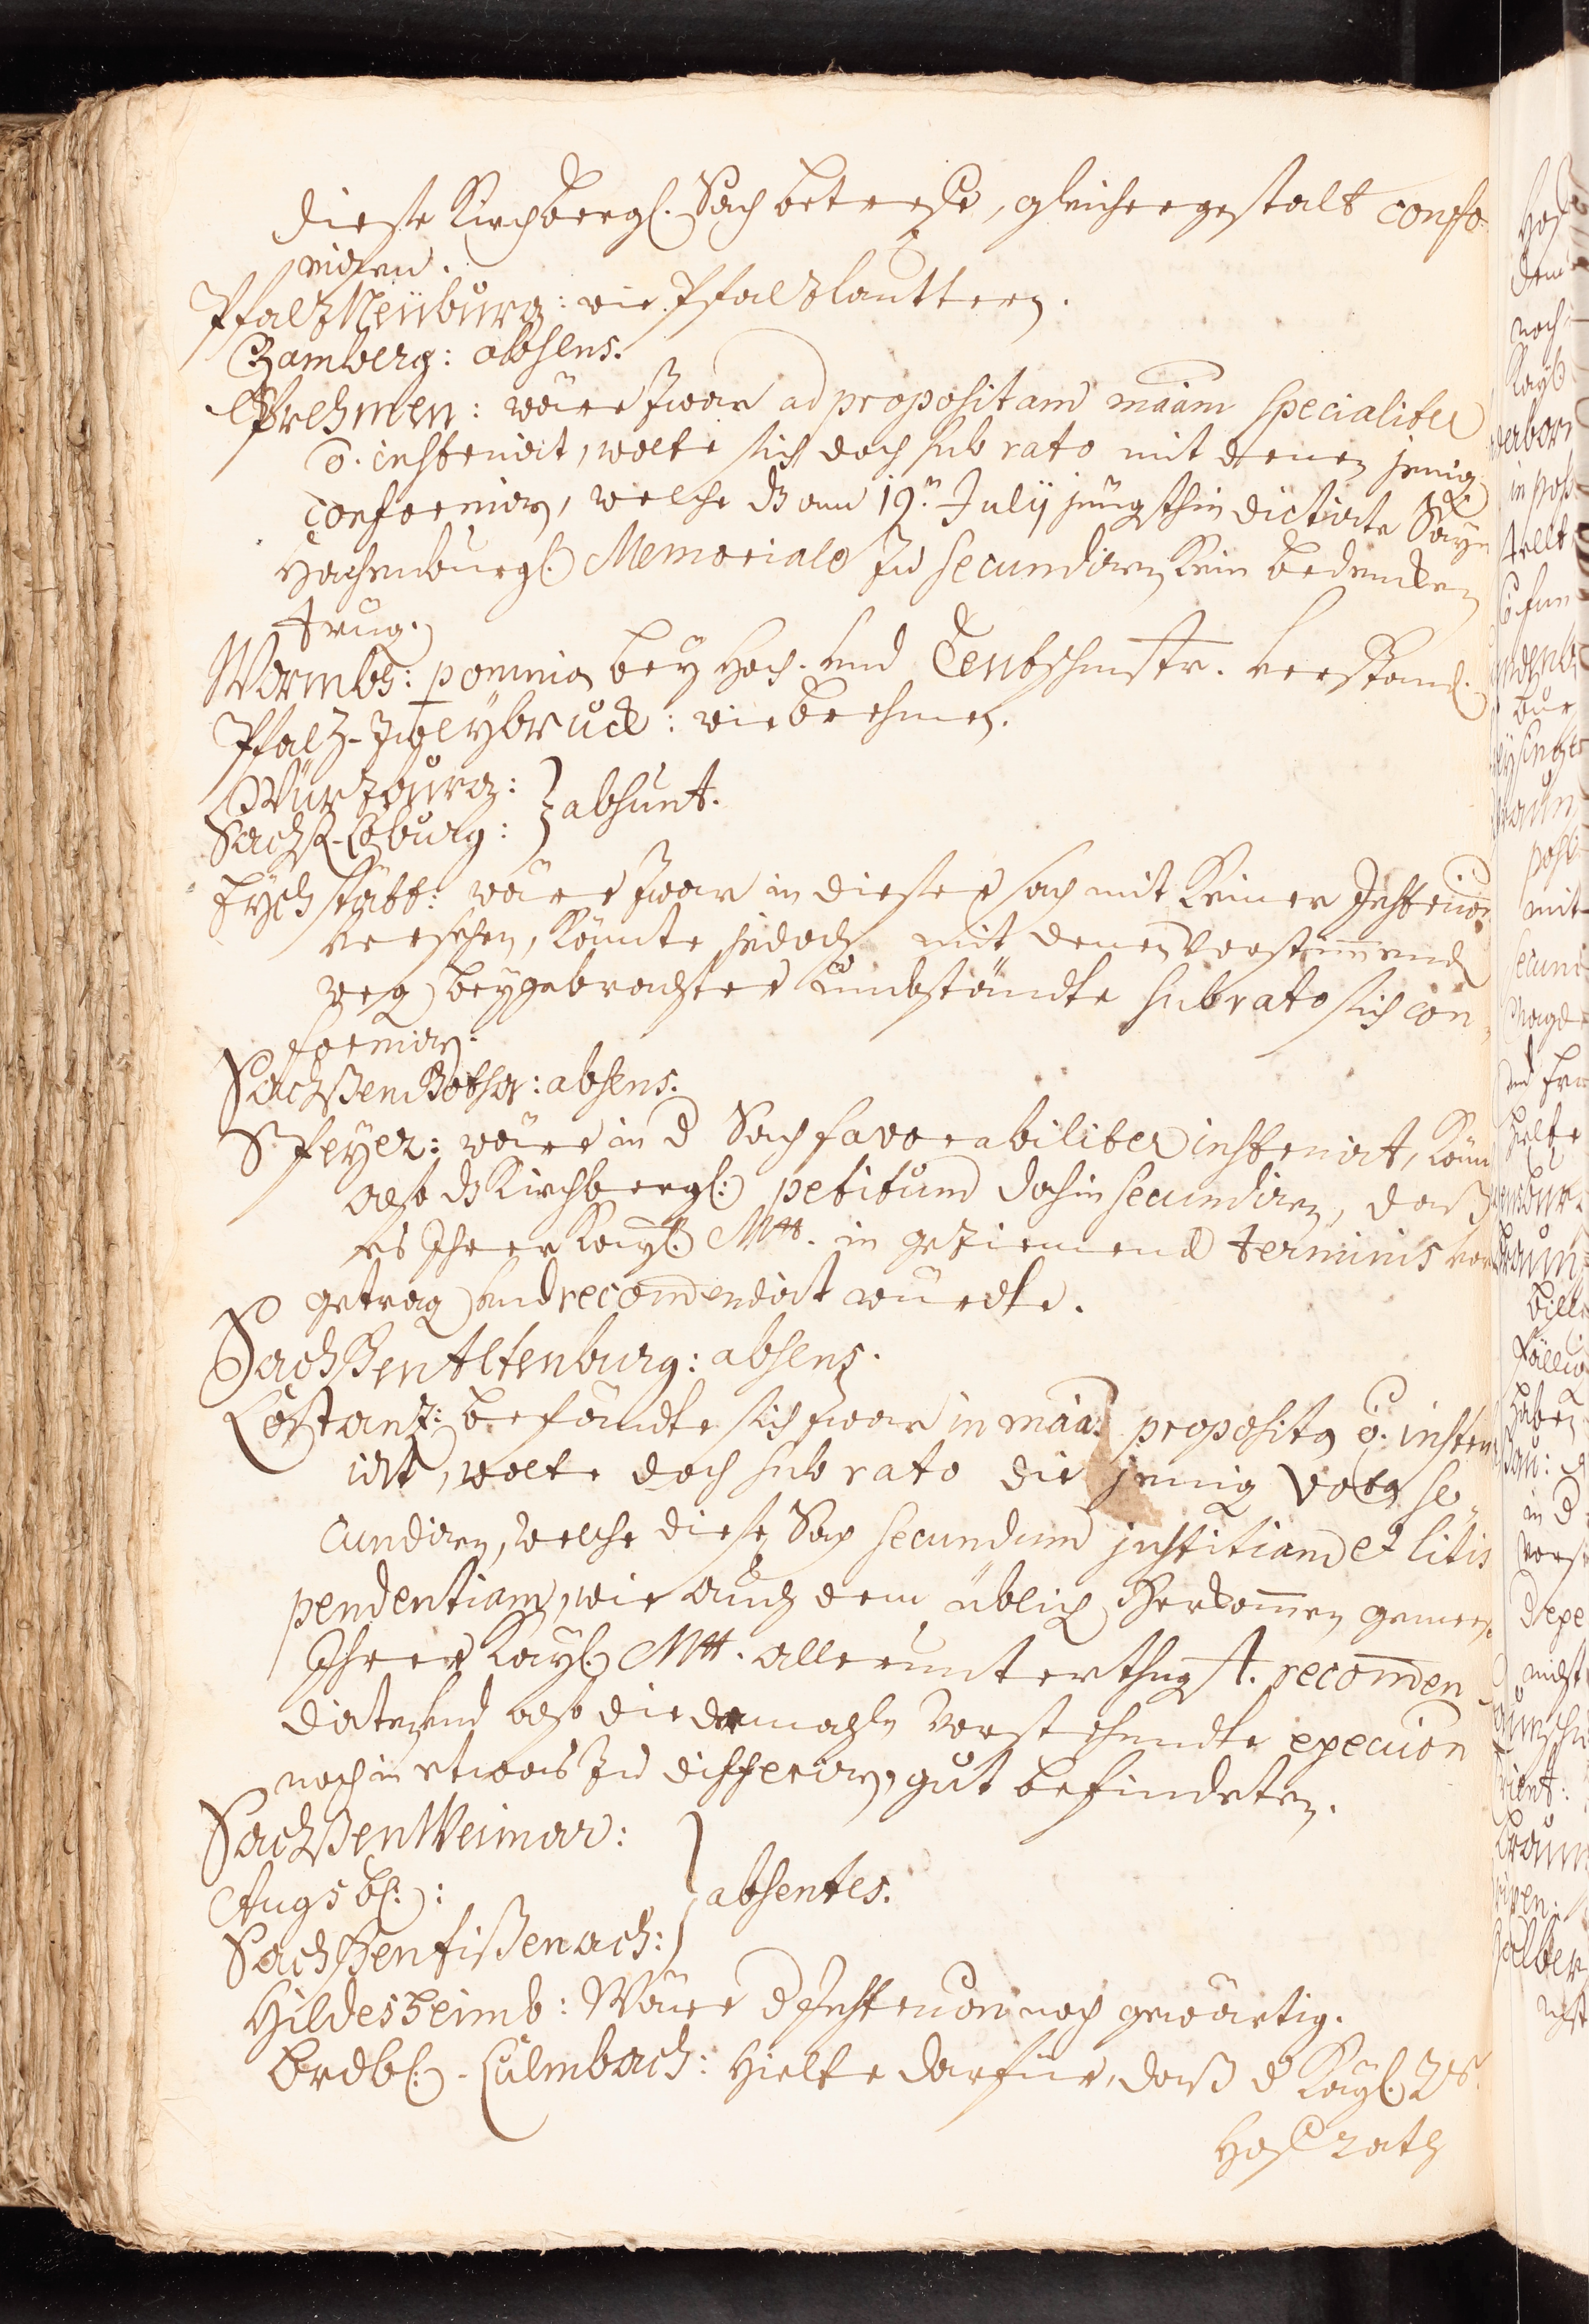 diese Kirchbergl. Sach betreffe, gleichergestalt confo-
miren.
Pfaltz Neüburg: wie Pfaltzlauttern.
Bamberg: absens.
Brehmen: wäre zwar ad propositam ma͞am specialiter
ō. instruirt, wolte sich doch sub rato mit denen jenig
conformirn, welche dz am 19.n Julij jüngsthin dictirte Sayn
Hachenburgl. Memoriale zu secundiren kein bedencken
trüg.
Wormbs: ponmia bey Hoch- und Teutschmstr. verstand.
Pfaltz-Zweybrück: wie brehmen.
Würtzburg:
Sachß-Coburg: } absunt.
Eychstätt: wäre zwar in dieser sach mit keiner Instruion
versehen, könte jedoch mit denen Vorstimmend
weg beygebrachter umbstände sub rato sich con-
formirn.
Sachßen Gotha: absens.
Speyer: wäre in d Sach favorabiliter instruirt, könn
also dz Kirchbergl: petitum dahin secundiren, daß
es Ihrer Kayl: Mtt. in geziemend terminis vor
getrag und recom̄endirt würdte.
Sachßen Altenburg: absens.
Costantz: befändte sich zwar in ma͞a proposita ō. instru-
irt, wolte doch sub rato die jenig vota se-
cundiren, welche diese Sach secundum justitiam et litis
pendentiam, wie auch dem üblich Herkom̄en gemees
Ihrer Kayl: Mtt. allerunterthngst. recom̄en
dirten, und also die dermahln vorstehendte execuion
noch in etwas zu differirn, gut befindeten.
Sachßen Weimar:
Augsb::
Sachßen Eißenach: } absentes.
Hildesheimb: Wäre d Instruion noch gewärtig.
Brdb:-Culmbach: hielte darfür, daß d Kayl. Rs.
Hoffrath